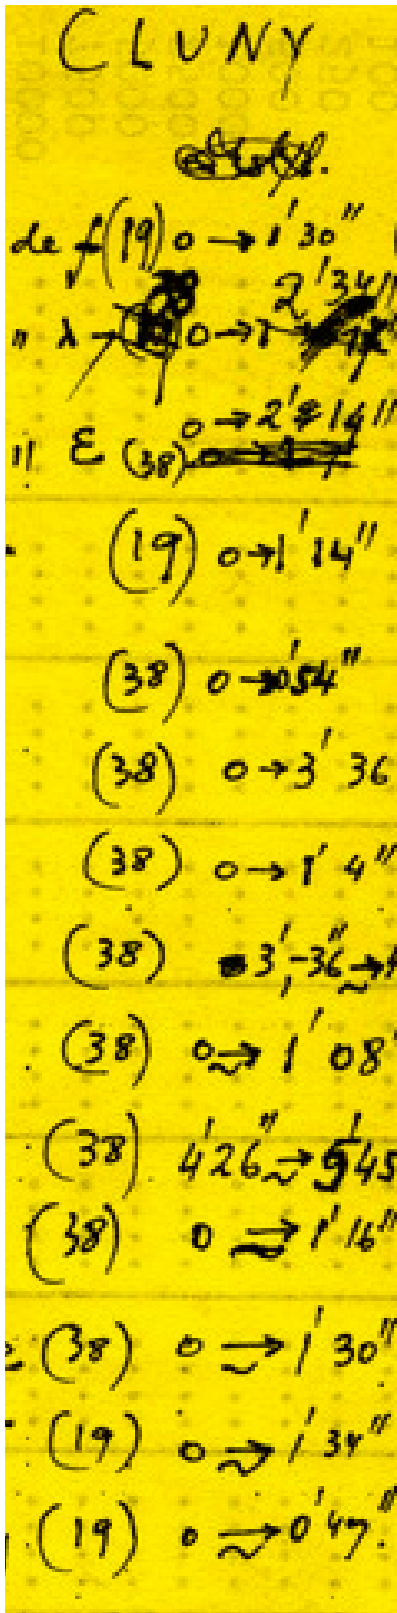 CLUNY
de f(19) 0 → 1'30"
" λ → 0 → 2'34"
" ε (38) 0 → 2' 14"
(19) 0 → 1' 14"
(38) 0 → 0'54"
(38) 0 → 3' 36
(38) 0 → 1' 4"
(38) 3'-36" →
(38) 0 → 1' 08
(38) 4'26" → 9'45
(38) 0 → 1' 16"
(38) 0 → 1' 30"
(19) 0 → 1' 34"
(19) 0 → 0' 47"